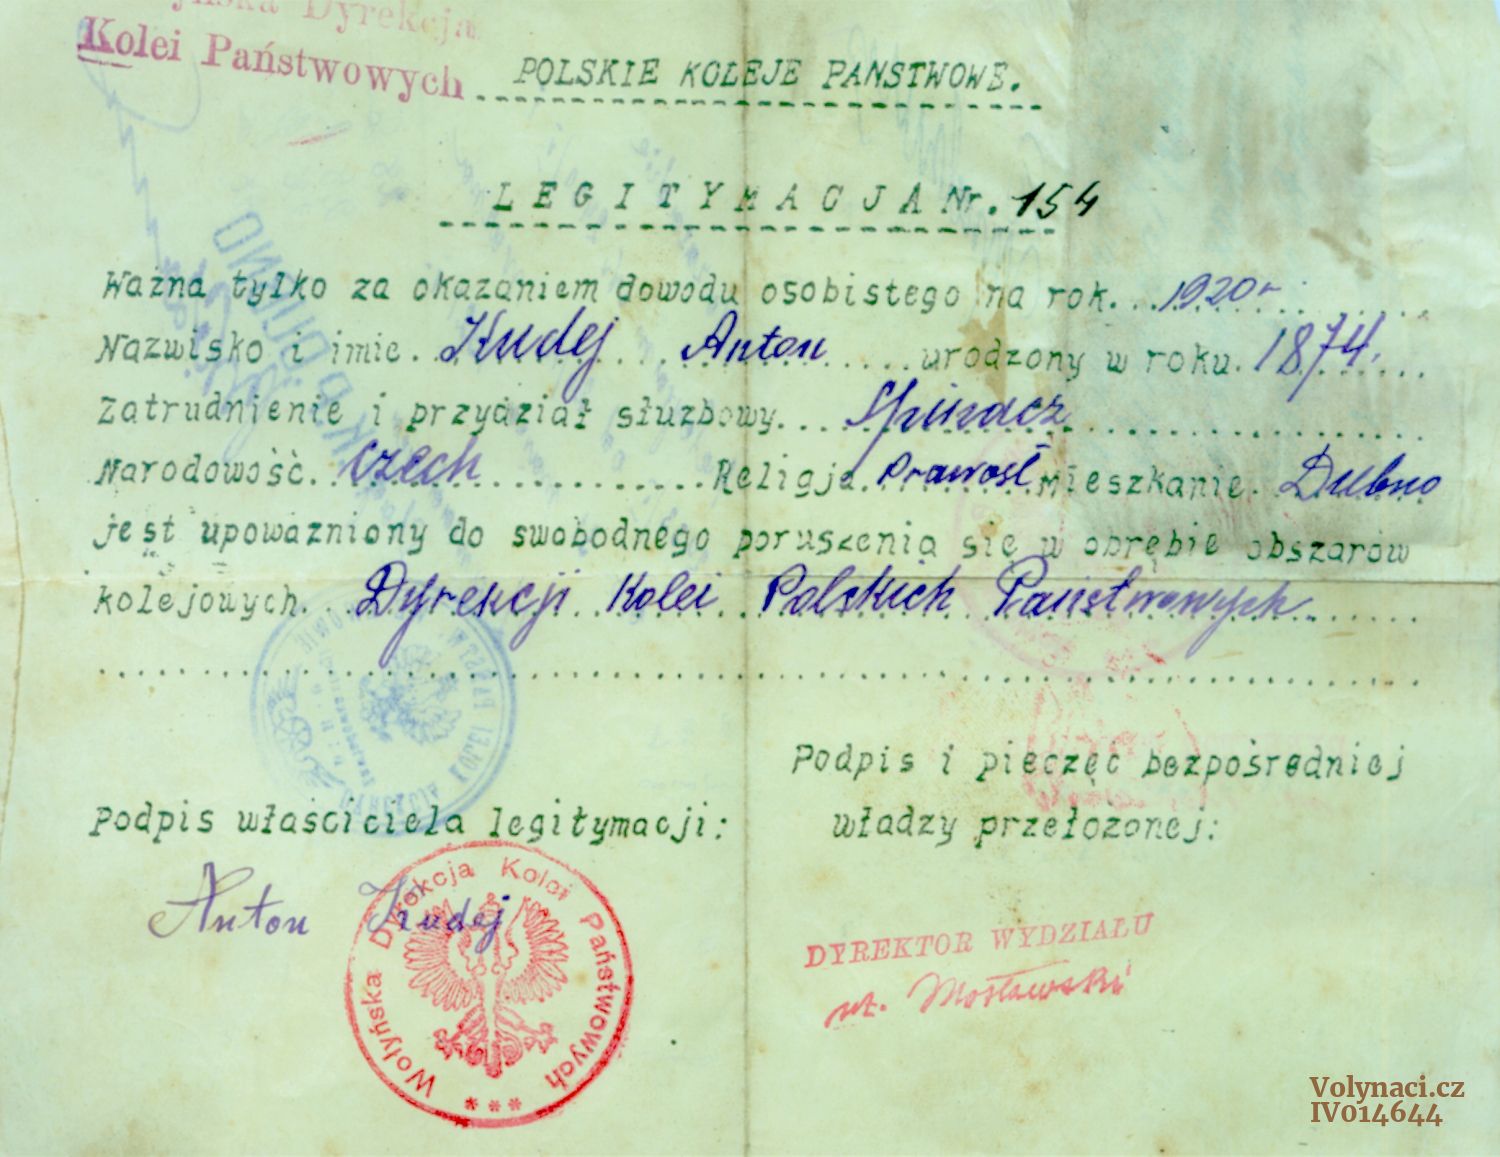 Dyrekcja
Kolei Państwowych
POLSKIE KOLEJE PANSTWOWE.
LEGITYMACJA Nr. 154
Ważna tylko za okazaniem dowodu osobistego na rok. 1920 r
Nazwisko i imie. Kudej Anton urodzony w roku. 1874.
Zatrudnienie i przydział służbowy. Spinacz
Narodowość. Czech Religja. Prawosł Mieszkanie. Dubno
jest upoważniony do swobodnego poruszenia się w obrębie obszarów
kolejowych. Dyrekcji Kolei Polskich Państwowych
Podpis i pieczęć bezpośredniej
Podpis właściciela legitymacji:
władzy przełożonej:
Anton Kudej
Wołyńska Dyrekcja Kolei Państwowych
***
DYREKTOR WYDZIAŁU
Volynaci.cz
IV014644